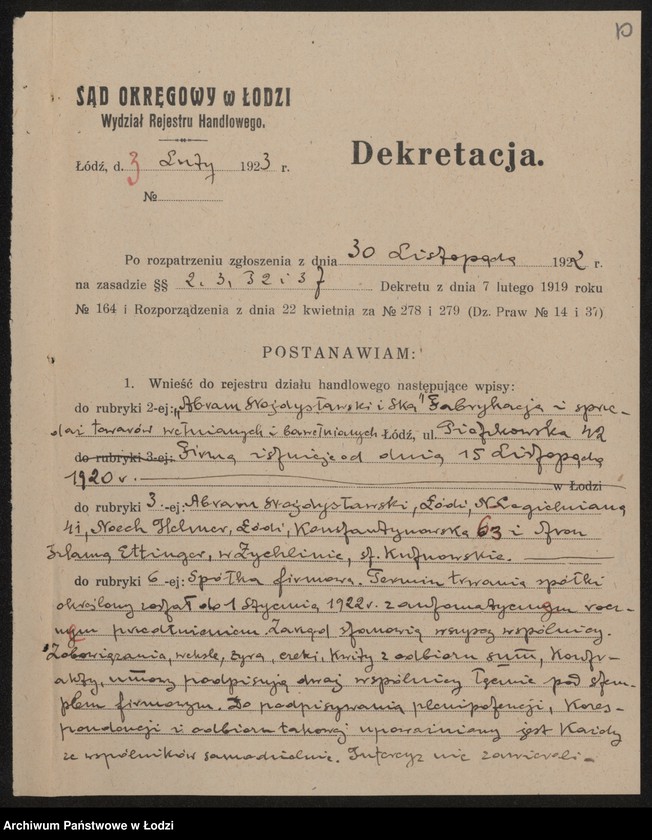 SĄD OKRĘGOWY w ŁODZI
Wydział Rejestru Handlowego.
Łódź, d. 3 Luty 1923 r.
№
Dekretacja.
Po rozpatrzeniu zgłoszenia z dnia 30 Listopada 1922 r.
na zasadzie §§ 2, 3, 32 i 37 Dekretu z dnia 7 lutego 1919 roku
№ 164 i Rozporządzenia z dnia 22 kwietnia za № 278 i 279 (Dz. Praw № 14 i 37)
POSTANAWIAM:
1. Wnieść do rejestru działu handlowego następujące wpisy:
do rubryki 2-ej: „Abram Wojdysławski i Ska" Fabrykacja i sprze-
daż towarów wełnianych i bawełnianych Łódź, ul. Piotrkowska 42
do rubryki 3-ej: Firma istnieje od dnia 15 Listopada
1920 r. w Łodzi
do rubryki 3.-ej: Abram Wojdysławski, Łódź, N. Cegielniana
41, Noech Helmer, Łódź, Konstantynowska 63 i Aron
Szlama Ettinger, w Żychlinie, st. Kutnowskie.
do rubryki 6-ej: Spółka firmowa. Termin trwania spółki
określony został do 1 Stycznia 1922 r. z automatycznem rocz-
nem przedłużeniem. Zarząd stanowią wszyscy wspólnicy.
Zobowiązania, weksle, żyra, czeki, kwity z odbioru sum, kontr-
akty, umowy podpisują dwaj wspólnicy łącznie pod stem-
plem firmowym. Do podpisywania plenipotencji, kores-
pondencji i odbioru takowej upoważniony jest każdy
ze wspólników samodzielnie. Intercyz nie zawierali.
Archiwum Państwowe w Łodzi